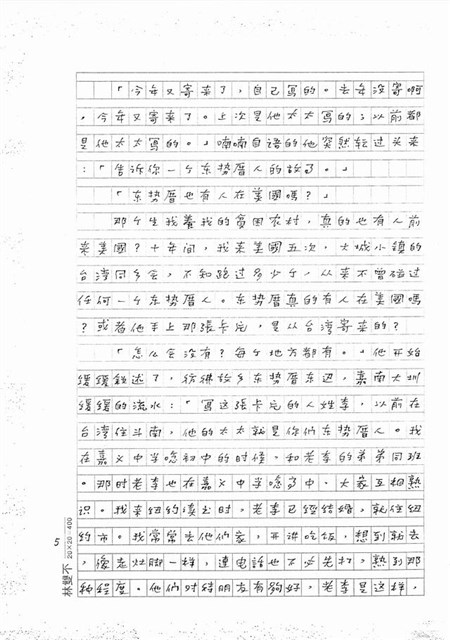 「今年又寄来了,自己写的。去年没寄啊
,今年又寄来了。上次是他太太写的;以前都
是他太太写的。」喃喃自語的他突然转过头来
:「告诉你一个东势厝人的故事。」
「东势厝也有人在美國嗎?」
那个生我養我的貧困农村,真的也有人前
来美國?十年间,我来美國五次,大城小鎮的
台湾同乡会,不知跑过多少个,从来不曾碰过
任何一个东势厝人。东势厝真的有人在美國嗎
?或者他手上那張卡片,是从台湾寄来的?
「怎么会没有?每个地方都有。」他开始
緩緩敘述了,彷彿故乡东势厝东边,嘉南大圳
緩緩的流水:「写这張卡片的人姓李,以前在
台湾住斗南,他的太太就是你们东势厝人。我
在嘉义中学念初中的时候,和老李的弟弟同班
。那时老李也在嘉义中学念高中,大家互相熟
识。我来纽约读书时,老李已经结婚,住在纽
约市。我常常去他们家,
,老李是这样,
林雙不 20×20=400
5